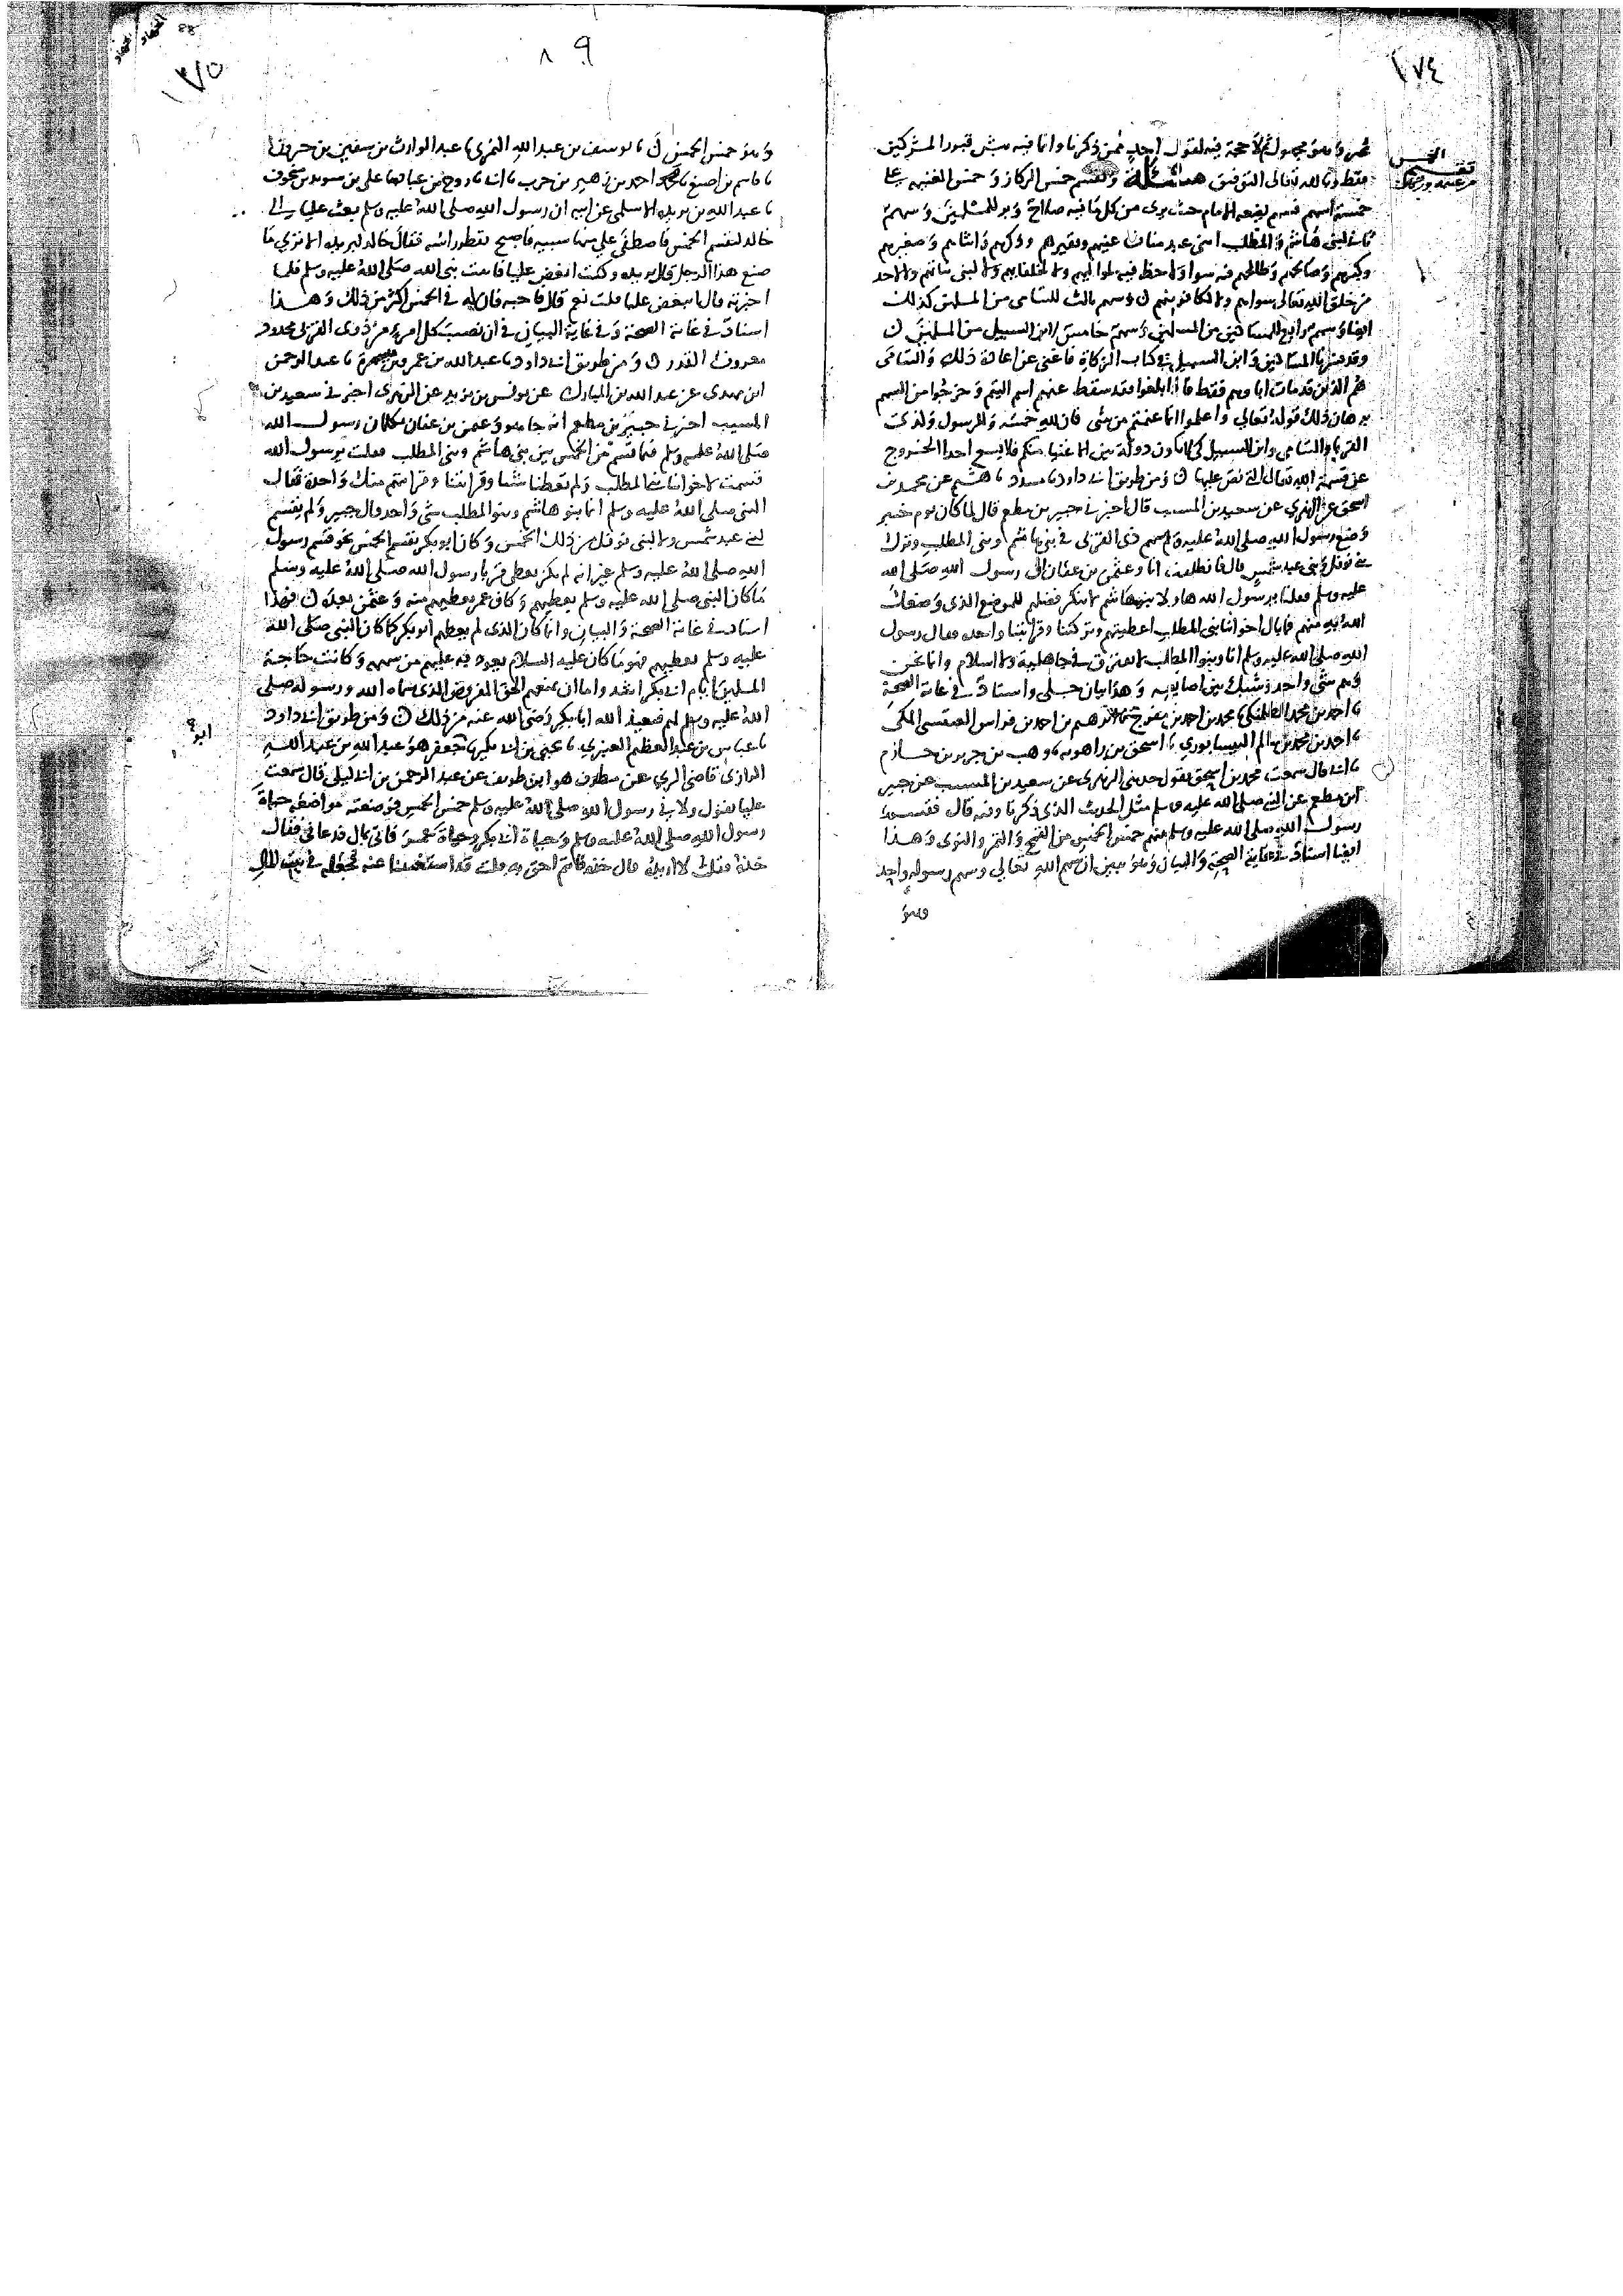 ١٧٤
وهو مجهول ثم لا حجة فيه لقول احد ممن ذكرنا وانما فيه نبش قبور المشركين
فقط وبالله تعالى التوفيق مسئلة وتقسم خمس الركاز وخمس الغنيمة على
خمسة اسهم فسهم يضعه الامام حيث يرى من كل ما فيه صلاح وبر للمسلمين وسهم
ثان لبنى هاشم والمطلب ابنى عبد مناف غنيهم وفقيرهم وذكرهم وانثاهم وصغيرهم
وكبيرهم وصالحهم وطالحهم فيه سواء ولا حظ فيه لمواليهم ولا لحلفائهم ولا لبنى بناتهم ولا لاحد
من خلق الله تعالى سواهم ولا لكافر منهم وسهم ثالث لليتامى من المسلمين كذلك
ايضا وسهم رابع للمساكين من المسلمين وسهم خامس لابن السبيل من المسلمين
وقد فسرنا المساكين وابن السبيل فى كتاب الزكاة فاغنى عن اعادة ذلك واليتامى
هم الذين قد مات اباوهم فقط فاذا بلغوا فقد سقط عنهم اسم اليتم وخرجوا من السهم
برهان ذلك قوله تعالى واعلموا انما غنمتم من شى فان لله خمسه وللرسول ولذى
القربى واليتامى وابن السبيل كى لا يكون دولة بين الاغنيا منكم فلا يسع احدا الخروج
عن قسمة الله تعالى التى نص عليها ومن طريق ابى داود نا مسدد نا هشيم عن محمد بن
اسحق عن الزهرى عن سعيد بن المسيب قال اخبرنى جبير بن مطعم قال لما كان يوم خيبر
وضع رسول الله صلى الله عليه وسلم سهم ذى القربى فى بنى هاشم وبنى المطلب وترك
بنى نوفل وبنى عبد شمس قال فانطلقت انا وعثمن بن عفان الى رسول الله صلى الله
عليه وسلم فقلنا يرسول الله هاولا بنو هاشم لا ننكر فضلهم للموضع الذى وضعك
الله به منهم فما بال اخواننا بنى المطلب اعطيتهم وتركتنا وقرابتنا واحدة فقال رسول
الله صلى الله عليه وسلم انا وبنوا المطلب لا نفترق فى جاهلية ولا اسلام وانما نحن
وهم شى واحد وشبك بين اصابعه وهذا بيان جلى واسناد فى غاية الصحة
نا احمد بن محمد الطلمنكى نا محمد بن احمد بن مفرج نا ابرهيم بن احمد بن فراس العبقسى المكى
نا احمد بن محمد بن سالم النيسابورى نا اسحق بن راهويه نا وهب بن جرير بن حازم
نا ابى قال سمعت محمد بن اسحق يقول حدثنى الزهرى عن سعيد بن المسيب عن جبير
ابن مطعم عن النبى صلى الله عليه وسلم مثل الحديث الذى ذكرنا وفيه قال فقسم
رسول الله صلى الله عليه وسلم بينهم خمس الخمس من القمح والتمر والنوى وهذا
ايضا اسناد فى غاية الصحة والبيان وهو يبين ان سهم الله تعالى وسهم رسوله واحد
وهو
٨٩
١٧٥
وهو خمس الخمس نا يوسف بن عبد الله النمرى نا عبد الوارث بن سفين بن حبرون
نا قاسم بن اصبغ نا احمد بن زهير بن حرب نا ابى نا روح بن عبادة نا على بن سويد بن منجوف
نا عبد الله بن بريدة الاسلمى عن ابيه ان رسول الله صلى الله عليه وسلم بعث عليا الى
خالد ليقسم الخمس فاصطفى على منها سبيه فاصبح يقطر راسه فقال خالد لبريدة الا ترى ما
صنع هذا الرجل قال بريدة وكنت ابغض عليا فاتيت نبى الله صلى الله عليه وسلم فلما
اخبرته قال اتبغض عليا قلت نعم قال فاحبه فان له فى الخمس اكثر من ذلك وهذا
اسناد فى غاية الصحة وفى غاية البيان فى ان نصيب كل امرئ من ذوى القربى محدود
معروف القدر ومن طريق ابى داود نا عبد الله بن عمر بن ميسرة نا عبد الرحمن
ابن مهدى عن عبد الله بن المبارك عن يونس بن يزيد عن الزهرى اخبرنى سعيد بن
المسيب اخبرنى جبير بن مطعم انه جا هو وعثمن بن عفان يكلمان رسول الله
صلى الله عليه وسلم فيما قسم من الخمس بين بنى هاشم وبنى المطلب فقلت يرسول الله
قسمت لاخواننا بنى المطلب ولم تعطنا شيا وقرابتنا وقرابتهم منك واحدة فقال
النبى صلى الله عليه وسلم انما بنو هاشم وبنو المطلب شى واحد قال جبير ولم يقسم
لبنى عبد شمس ولا لبنى نوفل من ذلك الخمس وكان ابو بكر يقسم الخمس نحو قسم رسول
الله صلى الله عليه وسلم غير انه لم يكن يعطى قربى رسول الله صلى الله عليه وسلم
ما كان النبى صلى الله عليه وسلم يعطيهم وكان عمر يعطيهم منه وعثمن بعده فهذا
اسناد فى غاية الصحة والبيان وانما كان الذى لم يعطهم ابو بكر كما كان النبى صلى الله
عليه وسلم يعطيهم فهو ما كان عليه السلام يعود به عليهم من سهمه وكانت حاجة
المسلمين ايام ابى بكر اشد واما ان يمنعهم الحق المفروض الذى سماه الله ورسوله صلى
الله عليه وسلم لهم فيعيذ الله ابا بكر رضى الله عنه من ذلك ومن طريق ابى داود
نا عباس بن عبد العظيم العنبرى نا يحيى بن ابى بكير نا ابو جعفر هو عبد الله بن عبد الله
الرازى قاضى الرى عن مطرف هو ابن طريف عن عبد الرحمن بن ابى ليلى قال سمعت
عليا يقول ولانى رسول الله صلى الله عليه وسلم خمس الخمس فوضعته مواضعه حياة
رسول الله صلى الله عليه وسلم وحياة ابى بكر وحياة عمر فاتى بمال فدعانى فقال
خذه فقلت لا اريده قال خذه فانتم احق به قلت قد استغنينا عنه فجعله فى بيت المال